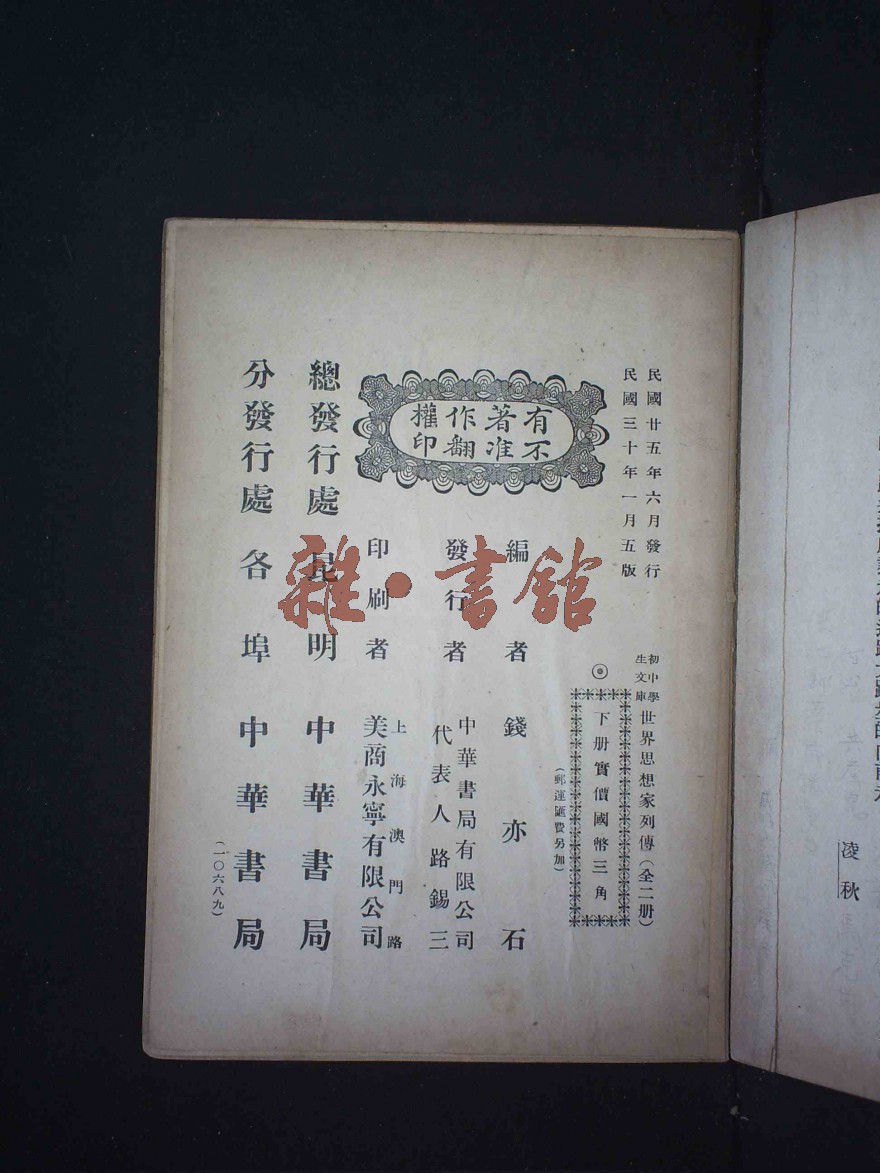 民國廿五年六月發行
民國三十年一月五版
初中學
生文庫
世界思想家列傳（全二册）
◎
下册實價國幣三角
（郵運匯費另加）
有著作權
不准翻印
編者錢亦石
發行者
中華書局有限公司
代表人路錫三
印刷者
上海澳門路
美商永寧有限公司
總發行處昆明中華書局
分發行處各埠中華書局
（一〇六八九）
雜·書館
凌秋